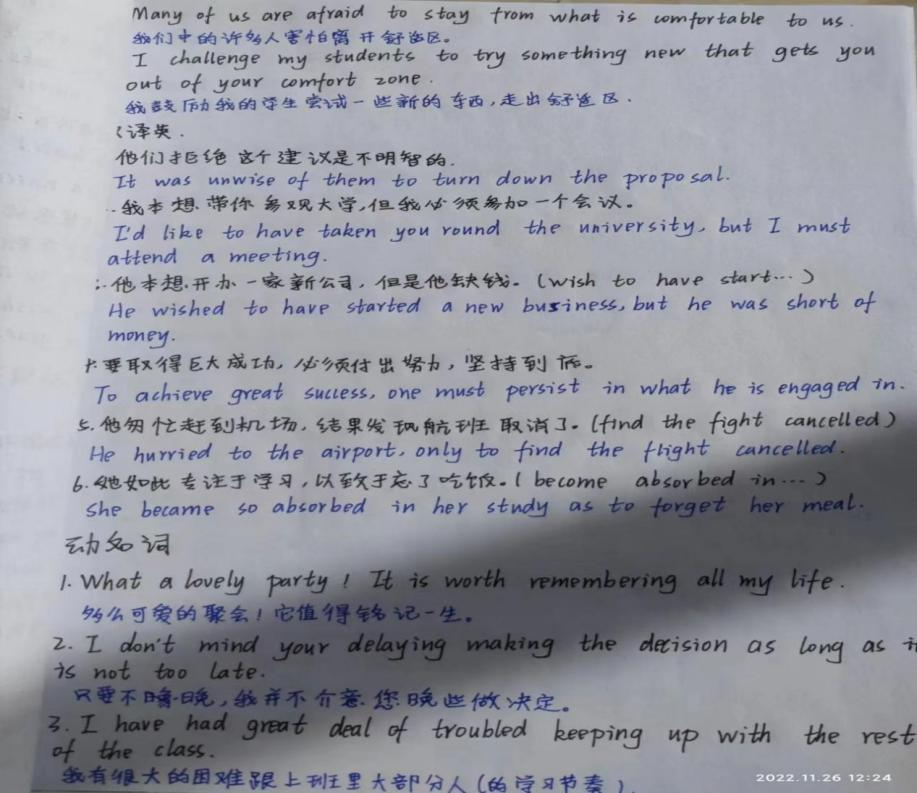 Many of us are afraid to stay from what is comfortable to us.
我们中的许多人害怕离开舒适区。
I challenge my students to try something new that gets you
out of your comfort zone.
我鼓励我的学生尝试一些新的东西,走出舒适区.
译英.
他们拒绝这个建议是不明智的.
It was unwise of them to turn down the proposal.
我本想带你参观大学,但我必须参加一个会议。
I'd like to have taken you round the university, but I must
attend a meeting.
他本想开办一家新公司,但是他缺钱。(wish to have start…)
He wished to have started a new business, but he was short of
money.
要取得巨大成功,必须付出努力,坚持到底。
To achieve great success, one must persist in what he is engaged in.
5.他匆忙赶到机场,结果发现航班取消了。(find the fight cancelled)
He hurried to the airport, only to find the flight cancelled.
6.她如此专注于学习,以致于忘了吃饭。(become absorbed in…)
She became so absorbed in her study as to forget her meal.
动名词
1. What a lovely party! It is worth remembering all my life.
多么可爱的聚会!它值得铭记一生。
2. I don't mind your delaying making the decision as long as
is not too late.
只要不噜晚,我并不介意您晚些做决定。
3. I have had great deal of troubled keeping up with the rest
of the class.
我有很大的困难跟上班里大部分人(的学习节奏)
2022.11.26 12:24